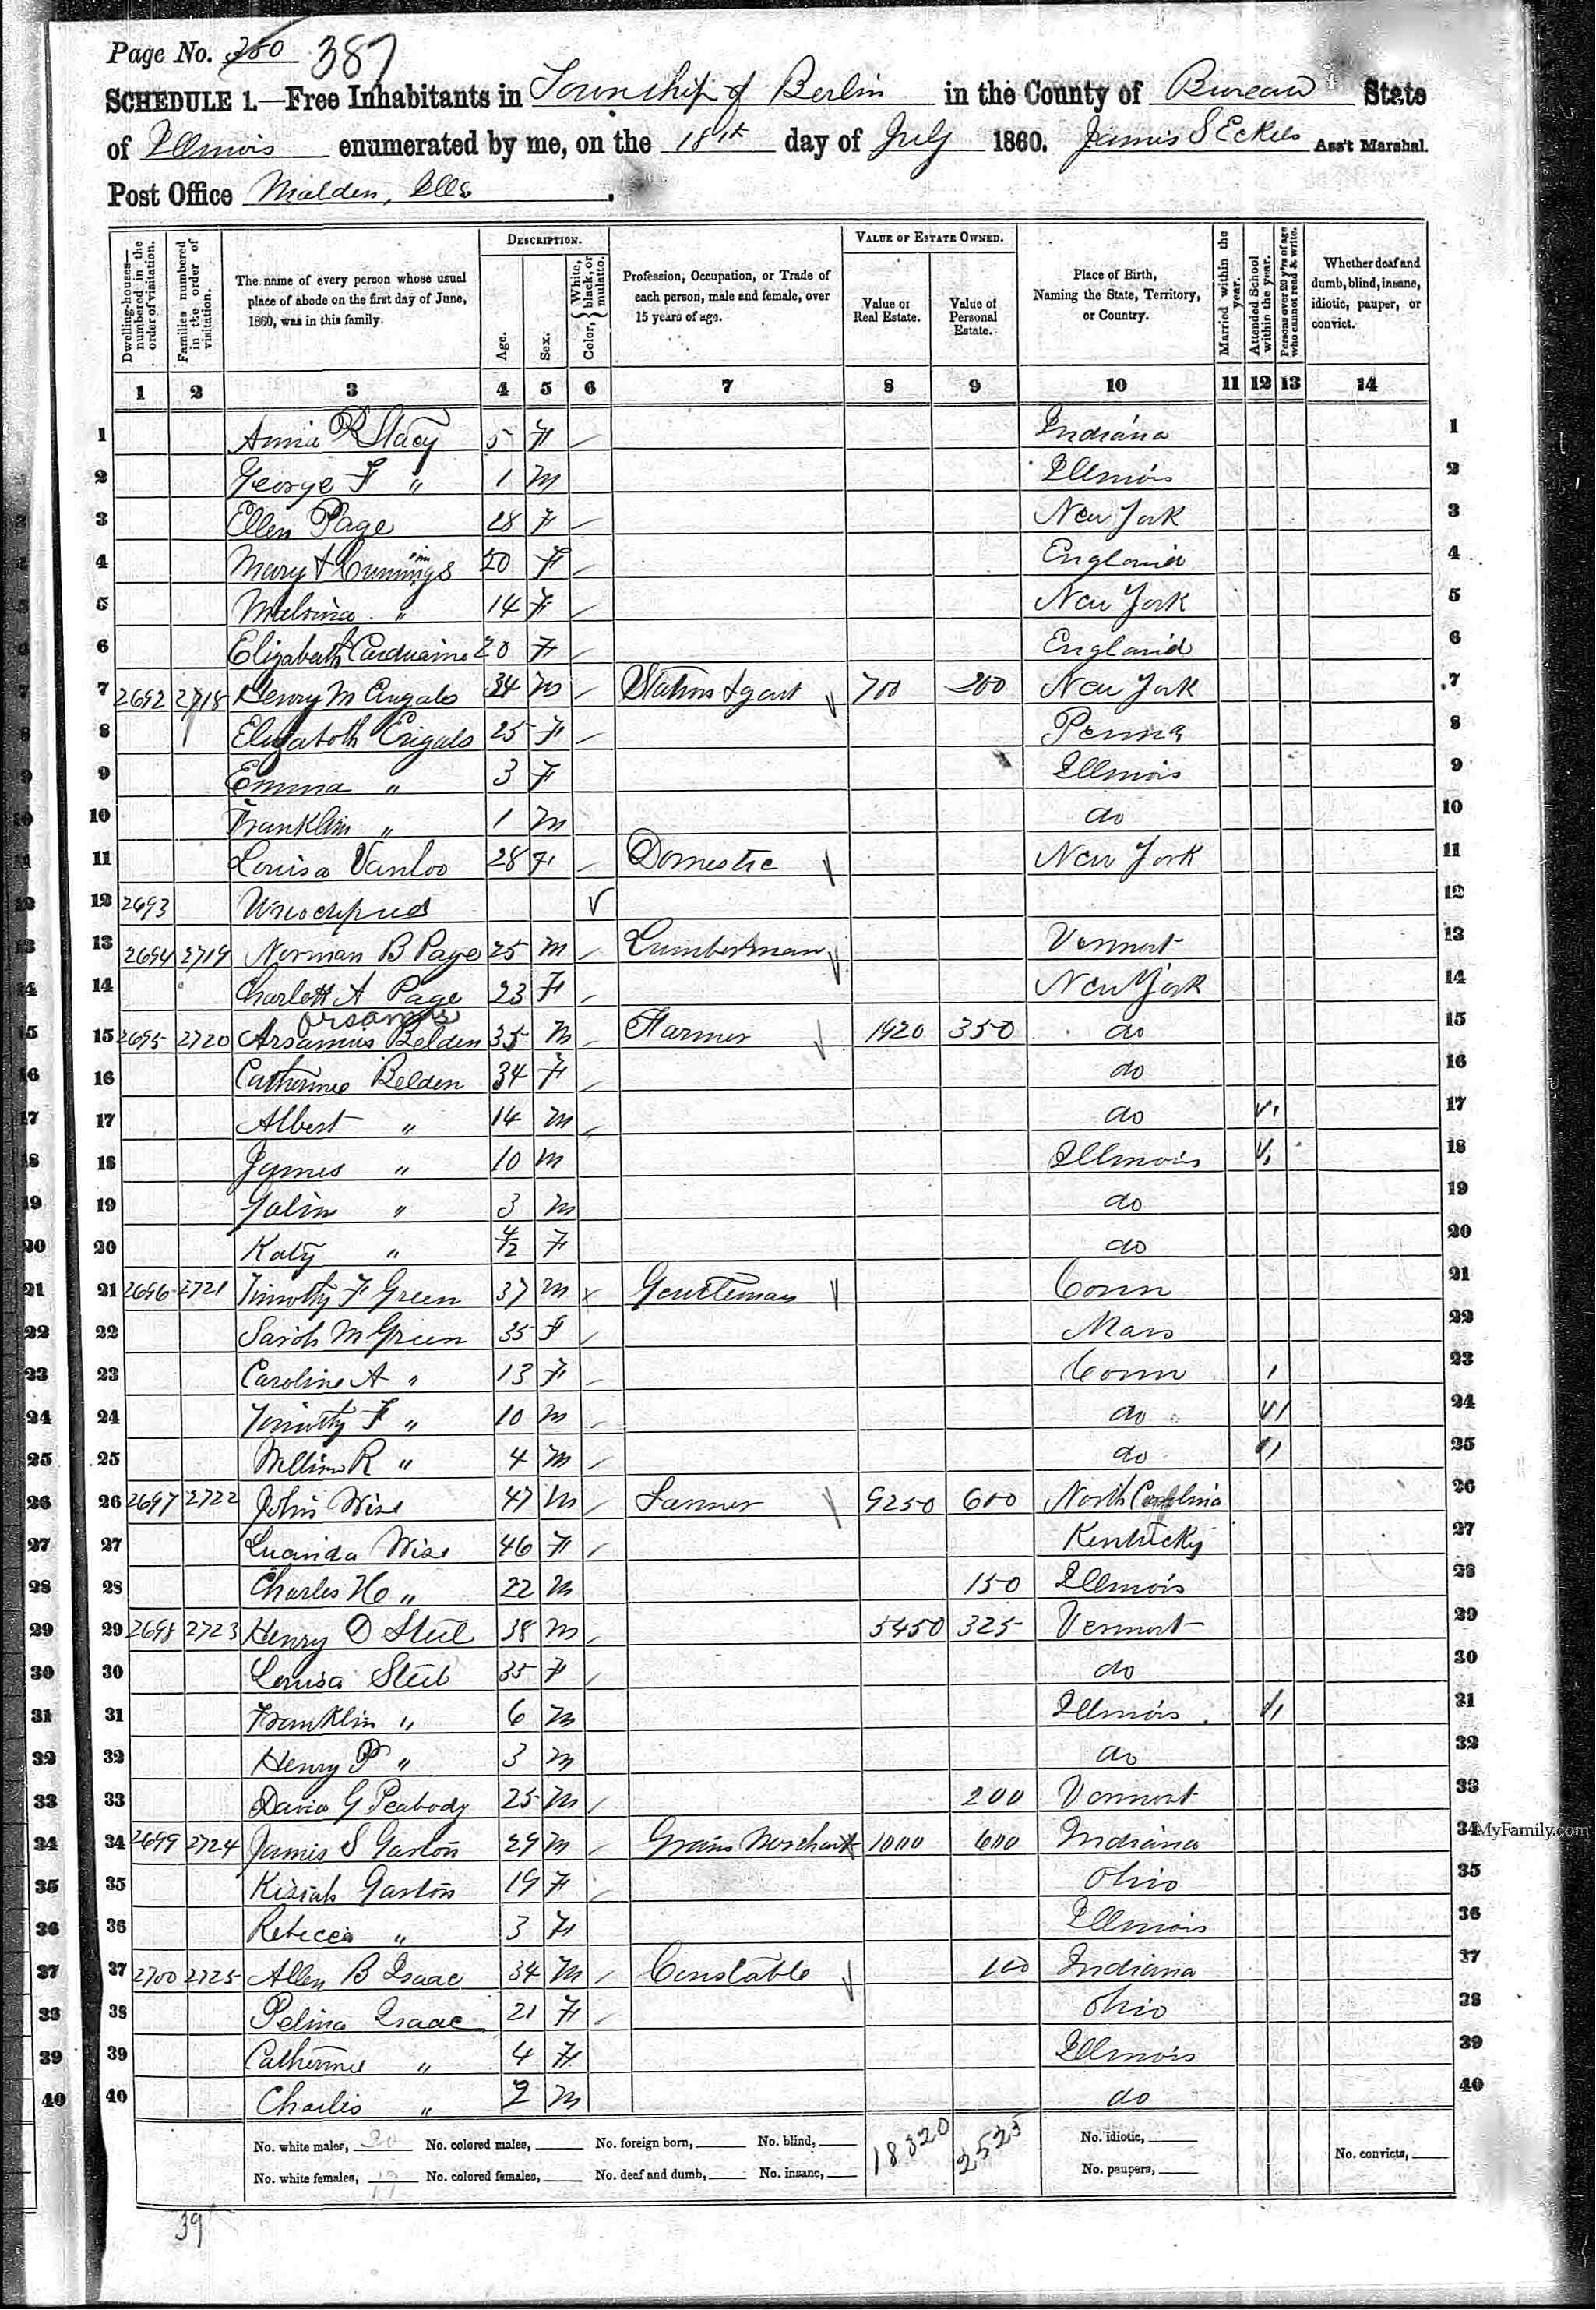 Page No. 380 387
SCHEDULE 1.—Free Inhabitants in Township of Berlin in the County of Bureau State
of Illinois enumerated by me, on the 18th day of July 1860. James S Eckels Ass't Marshal.
Post Office Malden, Ills.
Dwelling-houses—numbered in the order of visitation.
Families numbered in the order of visitation.
The name of every person whose usual place of abode on the first day of June, 1860, was in this family.
DESCRIPTION.
Age.
Sex.
Color, { White, black, or mulatto.
Profession, Occupation, or Trade of each person, male and female, over 15 years of age.
VALUE OF ESTATE OWNED.
Value of Real Estate.
Value of Personal Estate.
Place of Birth, Naming the State, Territory, or Country.
Married within the year.
Attended School within the year.
Persons over 20 y'rs of age who cannot read & write.
Whether deaf and dumb, blind, insane, idiotic, pauper, or convict.
1 2 3 4 5 6 7 8 9 10 11 12 13 14
1 Annia R Stacy 5 F Indiana 1
2 George F " 1 m Illinois 2
3 Ellen Page 28 F New York 3
4 Mary Cummings F England 4
5 Malvina " 14 F New York 5
6 Elizabeth 20 F England 6
7 2692 2718 Henry M 34 m Station Agent 700 200 New York 7
8 Elizabeth 25 F Penna 8
9 Emma " 3 F Illinois 9
10 Franklin " 1 m do 10
11 Louisa Vanloo 28 F Domestic New York 11
12 2693 Unoccupied 12
13 2694 2719 Norman B Page 25 m Lumberman Vermont 13
14 Charlott A Page 23 F New York 14
15 2695 2720 Arsamus Belden 35 m Farmer 1920 350 do 15
16 Catherine Belden 34 F do 16
17 Albert " 14 m do 17
18 James " 10 m Illinois 18
19 Galin " 3 m do 19
20 Katy " 4/12 F do 20
21 2696 2721 Timothy F Green 37 m Gentleman Conn 21
22 Sarah M Green 35 F Mass 22
23 Caroline A " 13 F Conn 23
24 Timothy F " 10 m do 24
25 William R " 4 m do 25
26 2697 2722 John Wise 47 m Farmer 9250 600 North Carolina 26
27 Luainda Wise 46 F Kentucky 27
28 Charles H " 22 m 150 Illinois 28
29 2698 2723 Henry O Steel 38 m 5450 325 Vermont 29
30 Louisa Steel 35 F do 30
31 Franklin " 6 m Illinois 31
32 Henry P " 3 m do 32
33 David G Peabody 25 m 200 Vermont 33
34 2699 2724 James S Gaston 29 m Grain Merchant 1000 600 Indiana 34
35 Kiziah Gaston 19 F Ohio 35
36 Rebecca " 3 F Illinois 36
37 2700 2725 Allen B Isaac 34 m Constable 100 Indiana 37
38 Pelina Isaac 21 F Ohio 38
39 Catherine " 4 F Illinois 39
40 Charlis " 2 m do 40
No. white males, 20 No. colored males, No. foreign born, No. blind, 18320 2525 No. idiotic,
No. white females, 19 No. colored females, No. deaf and dumb, No. insane, No. paupers, No. convicts,
39
MyFamily.com